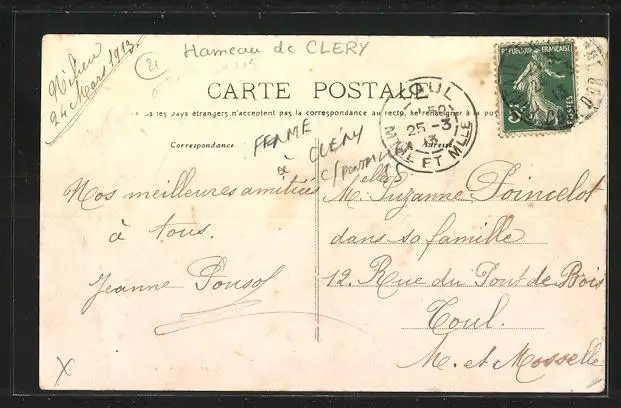 24 Mars 1913.
21
Hameau de CLERY
CARTE POSTALE
les pays étrangers n'acceptent pas la correspondance au recto, se renseigner à la
Correspondance
Adresse
FERME
à CLERY
TOUL
25-3
13
MTHE ET MLLE
REPUBLIQUE FRANÇAISE
5c
POSTES
CÔTE D'OR
Nos meilleures amitiés
à tous.
Jeanne Ponsot
Melle Suzanne Poincelot
dans sa famille
12. Rue du Pont de Bois
Toul.
M. et Moselle
X